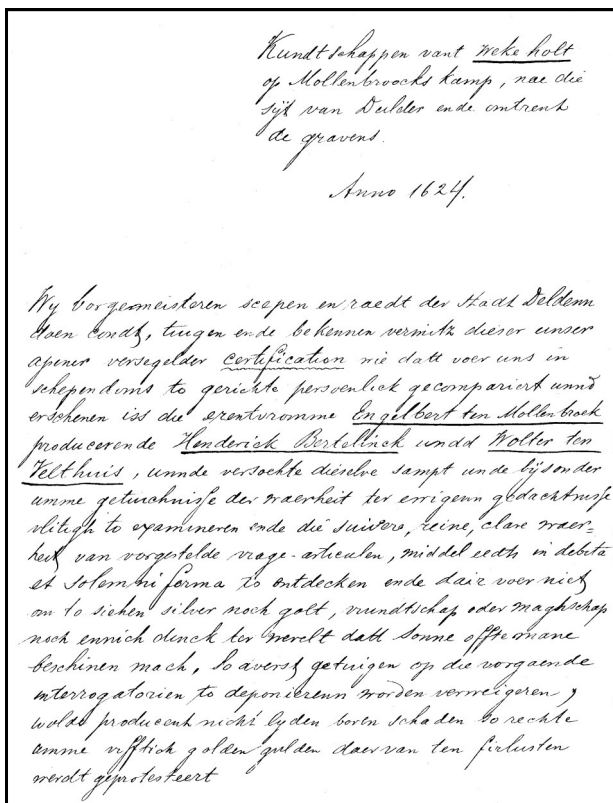 Kundtschappen vant weke holt
op Mollenbroocks kamp, nae die
sijt van Dulder ende omtrent
de gravens.
Anno 1624.
Wy borgemeisteren scepen en raedt der Stadt Deldenn
doen condt, tugen ende bekennen vermitz dieser unser
apener versegelder certification wie datt voer uns in
schependoms to gerichte persoenlick gecompariert unnd
erschenen iss die erentvromme Engelbert ten Mollenbroek
producerende Henderick Bertelinck undd Wolter ten
Velthuis, unnde versochte dieselve sampt unde bijsonder
umme getuichnisse der waerheit ter ewigenn gedachtnisse
vlitigh to examineren ende die suivere, reine, clare waer=
heit van vorgestelde vrage-articulen, middel eedts in debita
et solemni forma to ontdecken ende dair voer niet
an to siehen silver noch golt, vrundtschap oder maghschap
noch ennich dinck ter werelt datt Sonne offte mane
beschinen mach, so averst getuigen op die vorgaende
interrogatorien to deponierenn worden verweigeren,
wolde producent nicht lyden boren schaden so rechte
umme vifftich golden gulden daervan ten firlusten
werdt geprotesteert